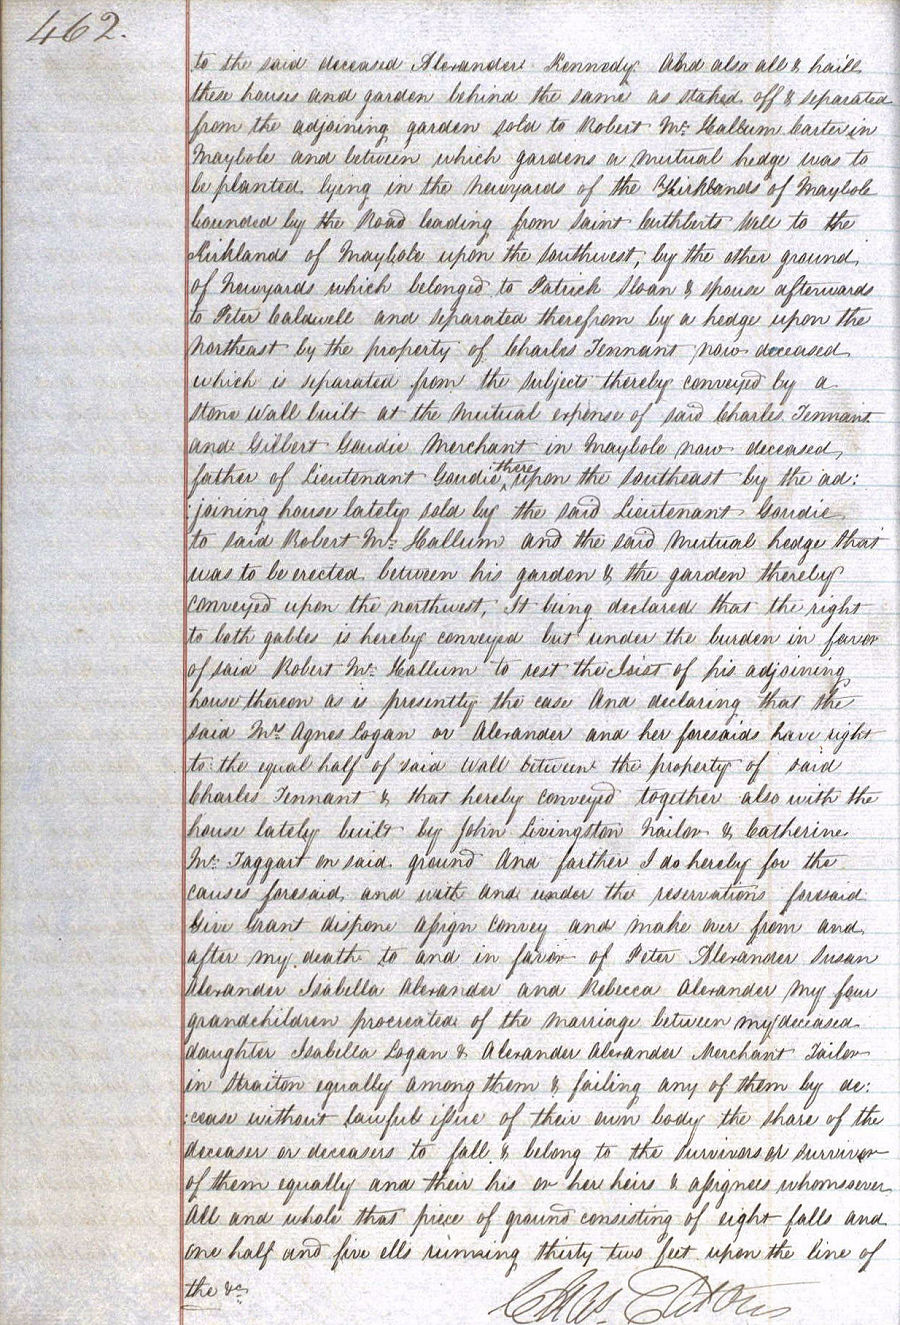 462.
to the said deceased Alexander Kennedy And also all & haill
these houses and garden behind the same as staked off & separated
from the adjoining garden sold to Robert Mc. Hallum Carter in
Maybole and between which gardens a mutual hedge was to
be planted lying in the Newyards of the Kirklands of Maybole
bounded by the Road leading from Saint Cuthberts Well to the
Kirklands of Maybole upon the southwest, by the other ground
of Newyards which belonged to Patrick Sloan & spouse afterwards
to Peter Caldwell and separated therefrom by a hedge upon the
Northeast by the property of Charles Tennant now deceased
which is separated from the subjects thereby conveyed by a
Stone Wall built at the mutual expense of said Charles Tennant
and Gilbert Goudie Merchant in Maybole now deceased,
father of Lieutenant Goudie there upon the southeast by the ad:
:joining house lately sold by the said Lieutenant Goudie
to said Robert Mc. Hallum and the said Mutual hedge that
was to be erected between his garden & the garden thereby
conveyed upon the northwest, It being declared that the right
to both gables is hereby conveyed but under the burden in favor
of said Robert Mc. Hallum to rest the Joist of his adjoining
house thereon as is presently the case And declaring that the
said Mrs Agnes Logan or Alexander and her foresaids have right
to the equal half of said Wall between the property of said
Charles Tennant & that hereby conveyed together also with the
house lately built by John Livingston Nailor & Catherine
Mc. Taggart on said ground And farther I do hereby for the
causes foresaid and with and under the reservations foresaid
Give Grant dispone assign Convey and make over from and
after my death to and in favor of Peter Alexander Susan
Alexander Isabella Alexander and Rebecca Alexander my four
grandchildren procreated of the marriage between my deceased
daughter Isabella Logan & Alexander Alexander Merchant Tailor
in Straiton equally among them & failing any of them by de:
:cease without lawful issue of their own body the share of the
deceaser or deceasers to fall & belong to the survivors or survivor
of them equally and their his or her heirs & assignees whomsoever
All and whole that piece of ground consisting of eight falls and
one half and five ells running thirty two feet upon the line of
the &c